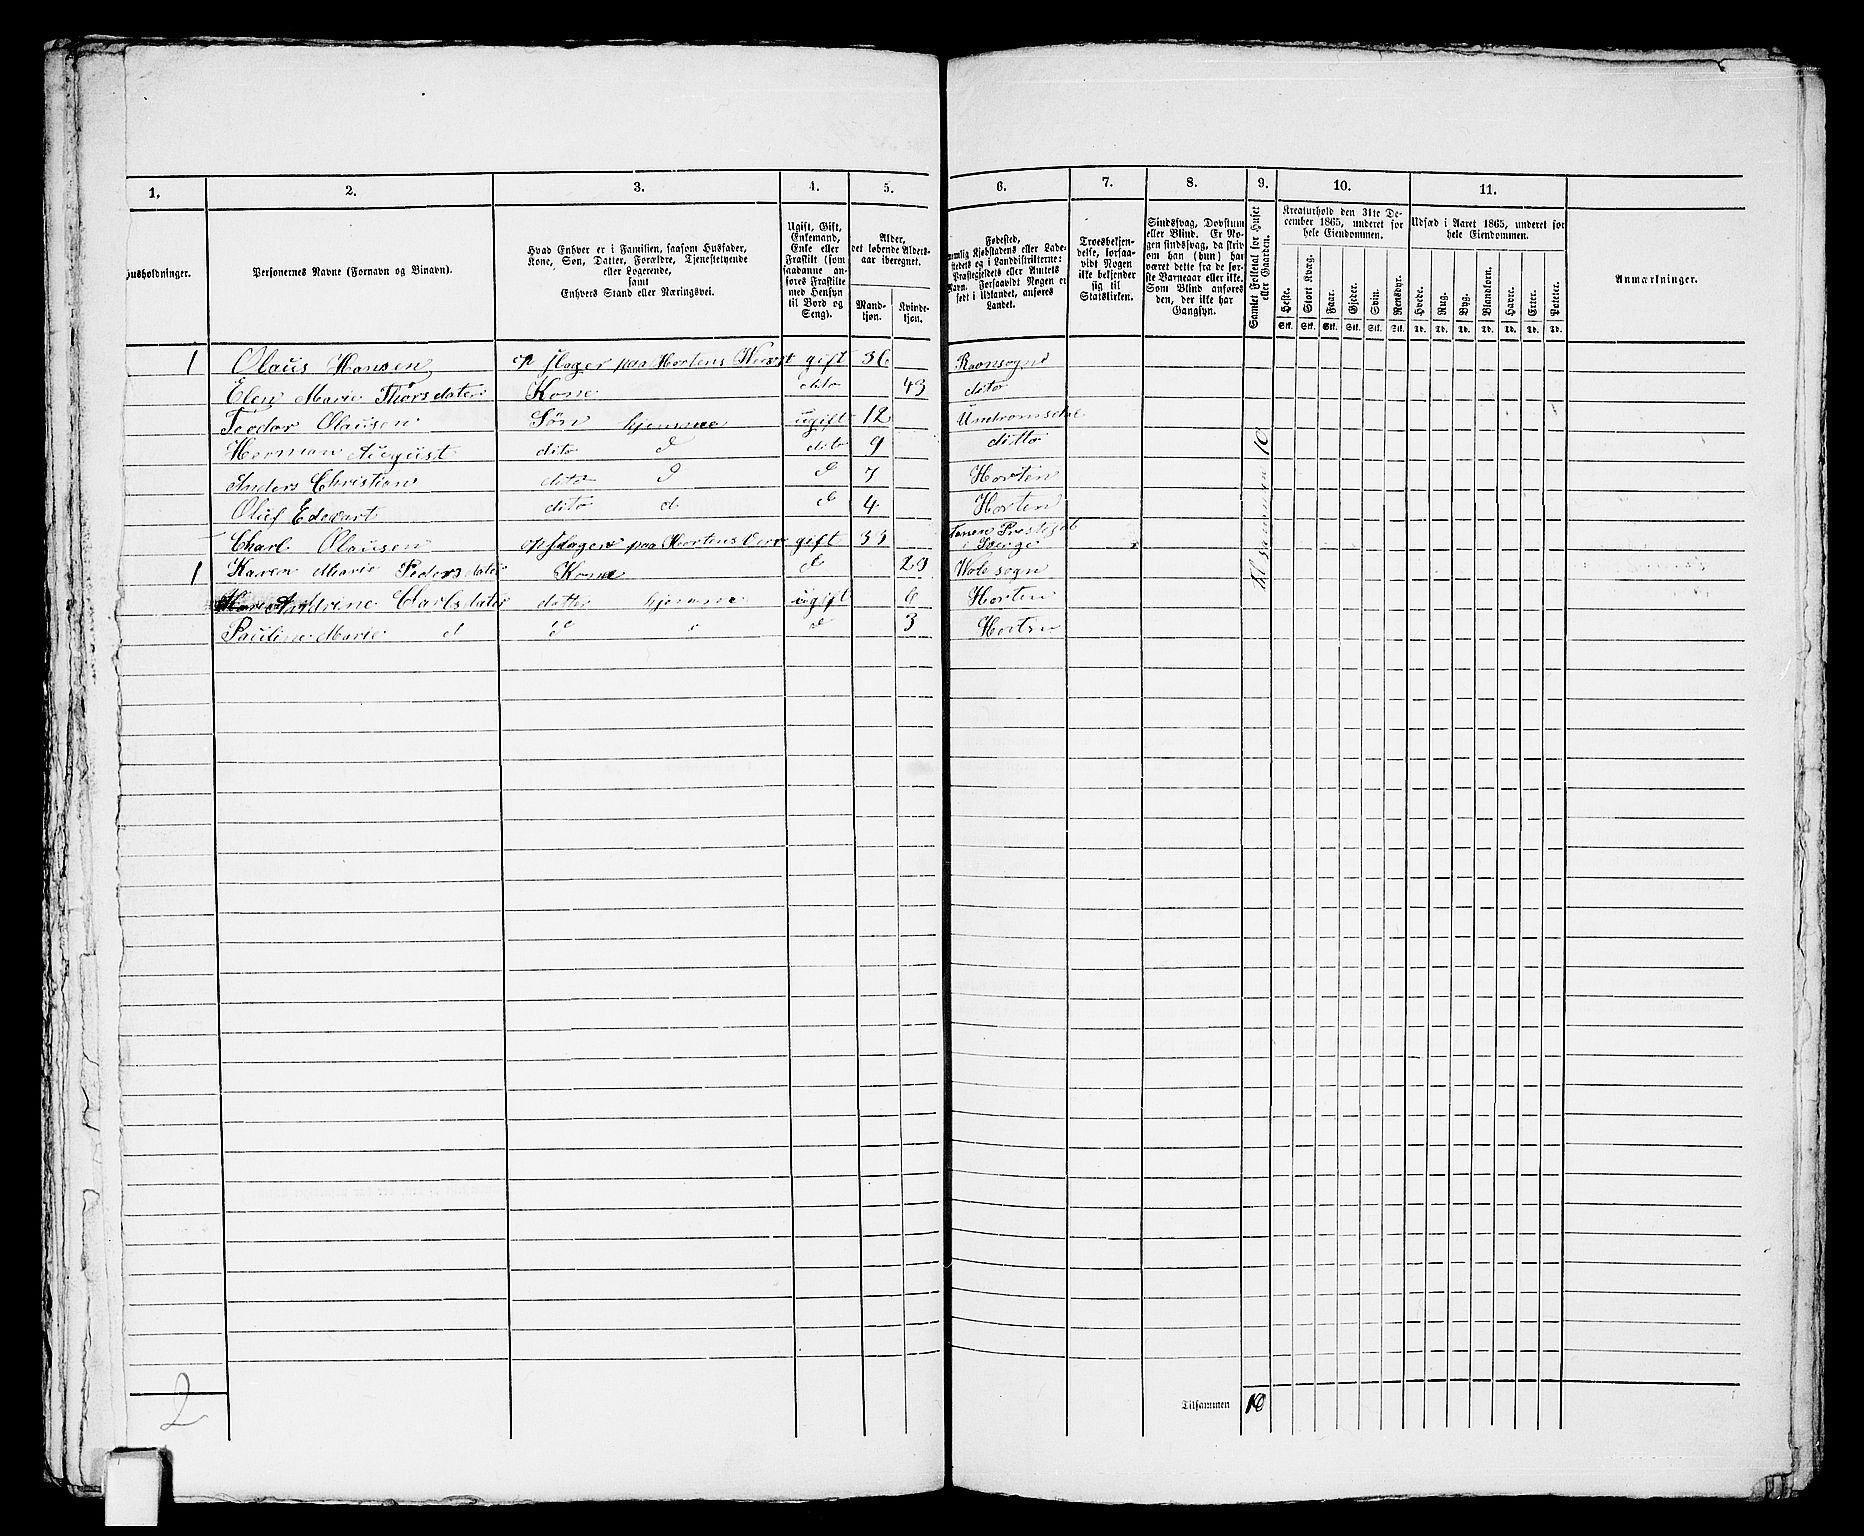 1. 2. 3. 4. 5. 6. 7. 8. 9. 10. 11.
husholdninger.
Personernes Navne (Fornavn og Binavn).
Hvad Enhver er i Familien, saasom Husfader,
Kone, Søn, Datter, Forældre, Tjenestetyende
eller Logerende,
samt
Enhvers Stand eller Næringsvei.
Ugift, Gift,
Enkemand,
Enke eller
Fraskilt (som
saadanne an-
føres Fraskilte
med Hensyn
til Bord og
Seng).
Alder,
det løbende Alders-
aar iberegnet.
Mand-
kjøn.
Kvinde-
kjøn.
Fødested,
nemlig Kjøbstadens eller Lade-
stedets og i Landdistrikterne:
Præstegjeldets eller Amtets
Navn. Forsaavidt Nogen er
født i Udlandet, anføres
Landet.
Troesbekjen-
delse, forsaa-
vidt Nogen
ikke bekjender
sig til
Statskirken.
Sindssvag, Døvstum
eller Blind. Er No-
gen sindssvag, da skriv
om han (hun) har
været dette fra de før-
ste Barneaar eller ikke.
Som Blind anføres
den, der ikke har
Gangsyn.
Samlet Folketal for Huset
eller Gaarden.
Kreaturhold den 31te De-
cember 1865, underet for
hele Eiendommen.
Heste. Stort Kvæg. Faar. Gjeder. Svin. Rensdyr.
Stk. Stk. Stk. Stk. Stk. Stk.
Udsæd i Aaret 1865, underet for
hele Eiendommen.
Hvede. Rug. Byg. Blandkorn. Havre. Erter. Poteter.
Td. Td. Td. Td. Td. Td. Td.
Anmærkninger.
1 Olaus Hansen op slager paa Hortens Werft gift 36
Elen Marie Thorsdater Kone dito 43 dito
Teodor Olausen Søn hjemme ugift 12
Herman August dito d dito 9 ditto
Anders Christian dito d d 7 Horten
Oluf Edevart dito d d 4 Horten
Charl Olausen opslager paa Hortens Verv gift 33 Prestegel
i Sverge
1 Karen Marie Pedersdater Kone d Wolesogn
Andrine Carlsdater datter hjemme ugift 6 Horten
Pauline Marie d d " d 3 Horten
Tilsammen 10
Tilsammen 10
2